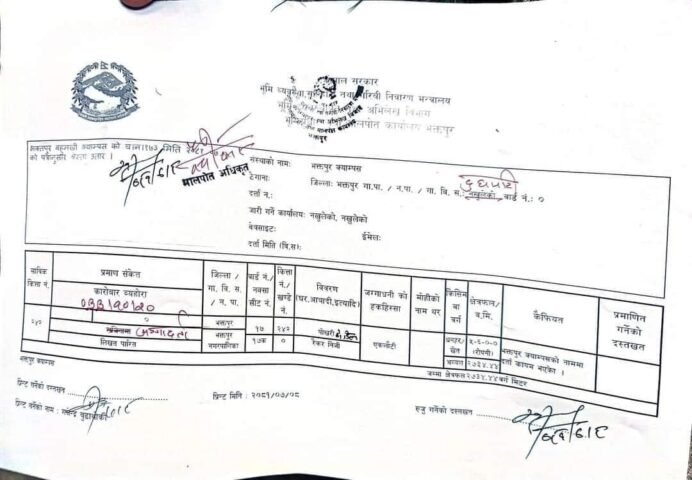 नेपाल सरकार
भूमि व्यवस्था, सहकारी तथा गरिबी निवारण मन्त्रालय
अभिलेख विभाग
मालपोत कार्यालय भक्तपुर
भक्तपुर बहुमुखी क्याम्पस को च.नं. १७३ मिति
को पत्रानुसार श्रेस्ता उतार ।
मालपोत अधिकृत
संस्थाको नाम: भक्तपुर क्याम्पस
ठेगाना: जिल्ला: भक्तपुर गा.पा. / न.पा. / गा. वि. स. नखुलेको वार्ड नं.: ०
दुधपाटी
दर्ता नं.:
जारी गर्ने कार्यालय: नखुलेको, नखुलेको
वेबसाइट: ईमेल:
दर्ता मिति (वि.स):
साविक कित्ता नं.
प्रमाण संकेत
कारोवार व्यहोरा
जिल्ला / गा. वि. स. / न. पा.
वार्ड नं./ नक्सा सीट नं.
कित्ता नं./ खण्डे नं.
विवरण (घर,आवादी,इत्यादि)
जग्गाधनी को हकहिस्सा
मोहीको नाम थर
किसिम वा वर्ग
क्षेत्रफल/ व.मि.
कैफियत
प्रमाणित गर्नेको दस्तखत
२४२
०
लिखत पारित
भक्तपुर
भक्तपुर नगरपालिका
१७
१७क
२४२
०
पोखरी
रैकर निजी
एकलौटी
५-६-०-०
(रोपनी)
२७३४.४४
भक्तपुर क्याम्पसको नाममा दर्ता कायम भएको ।
जम्मा क्षेत्रफल २७३४.४४ वर्ग मिटर
भक्तपुर क्याम्पस
प्रिन्ट गर्नेको दस्तखत
प्रिन्ट मिति : २०८१/०७/०८
रुजु गर्नेको दस्तखत
प्रिन्ट गर्नेको नाम :